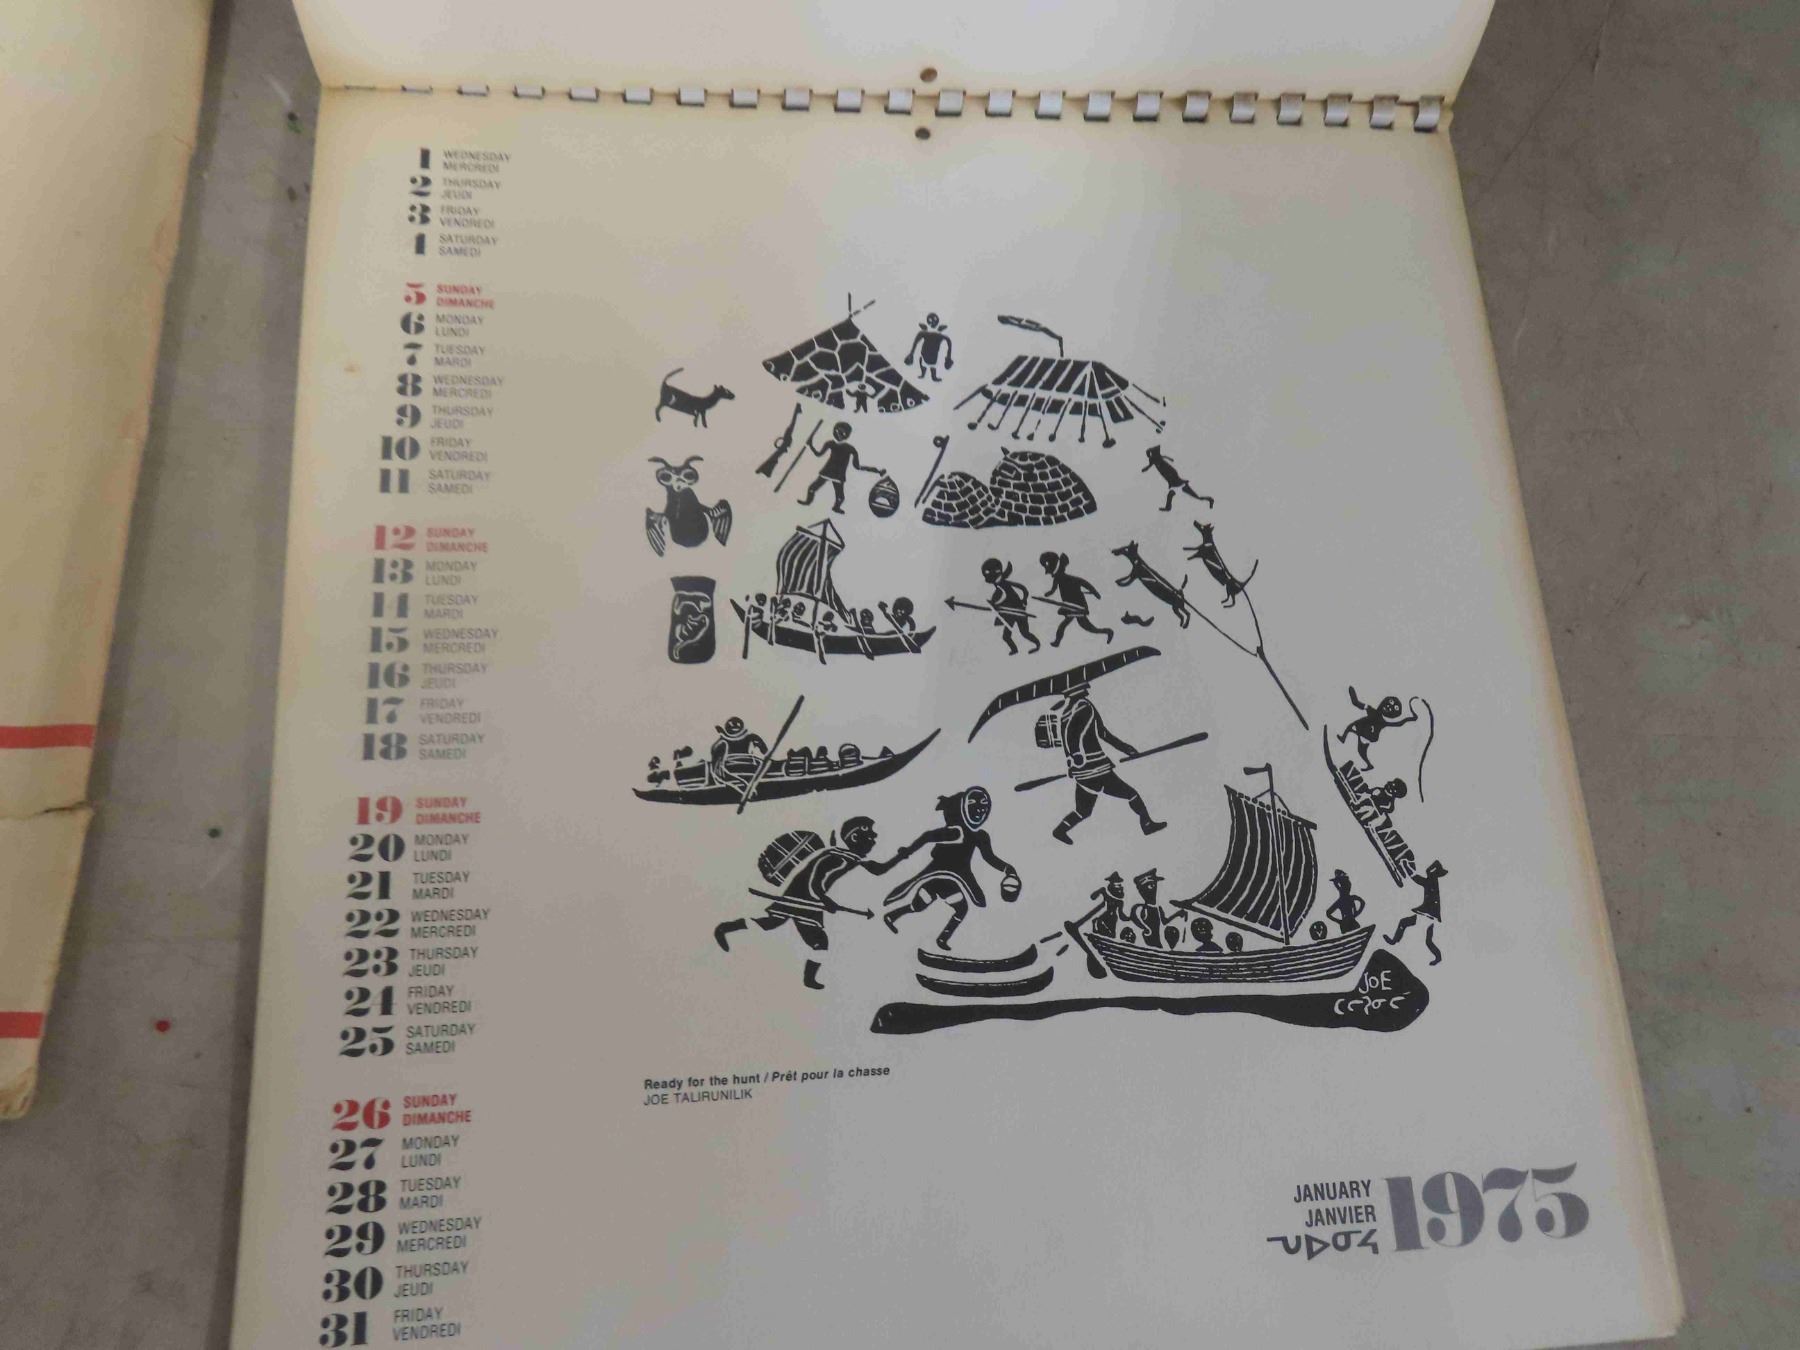 1 WEDNESDAY
MERCREDI
2 THURSDAY
JEUDI
3 FRIDAY
VENDREDI
4 SATURDAY
SAMEDI
5 SUNDAY
DIMANCHE
6 MONDAY
LUNDI
7 TUESDAY
MARDI
8 WEDNESDAY
MERCREDI
9 THURSDAY
JEUDI
10 FRIDAY
VENDREDI
11 SATURDAY
SAMEDI
12 SUNDAY
DIMANCHE
13 MONDAY
LUNDI
14 TUESDAY
MARDI
15 WEDNESDAY
MERCREDI
16 THURSDAY
JEUDI
17 FRIDAY
VENDREDI
18 SATURDAY
SAMEDI
19 SUNDAY
DIMANCHE
20 MONDAY
LUNDI
21 TUESDAY
MARDI
22 WEDNESDAY
MERCREDI
23 THURSDAY
JEUDI
24 FRIDAY
VENDREDI
25 SATURDAY
SAMEDI
26 SUNDAY
DIMANCHE
27 MONDAY
LUNDI
28 TUESDAY
MARDI
29 WEDNESDAY
MERCREDI
30 THURSDAY
JEUDI
31 FRIDAY
VENDREDI
JOE
Ready for the hunt / Prêt pour la chasse
JOE TALIRUNILIK
JANUARY
JANVIER
1975